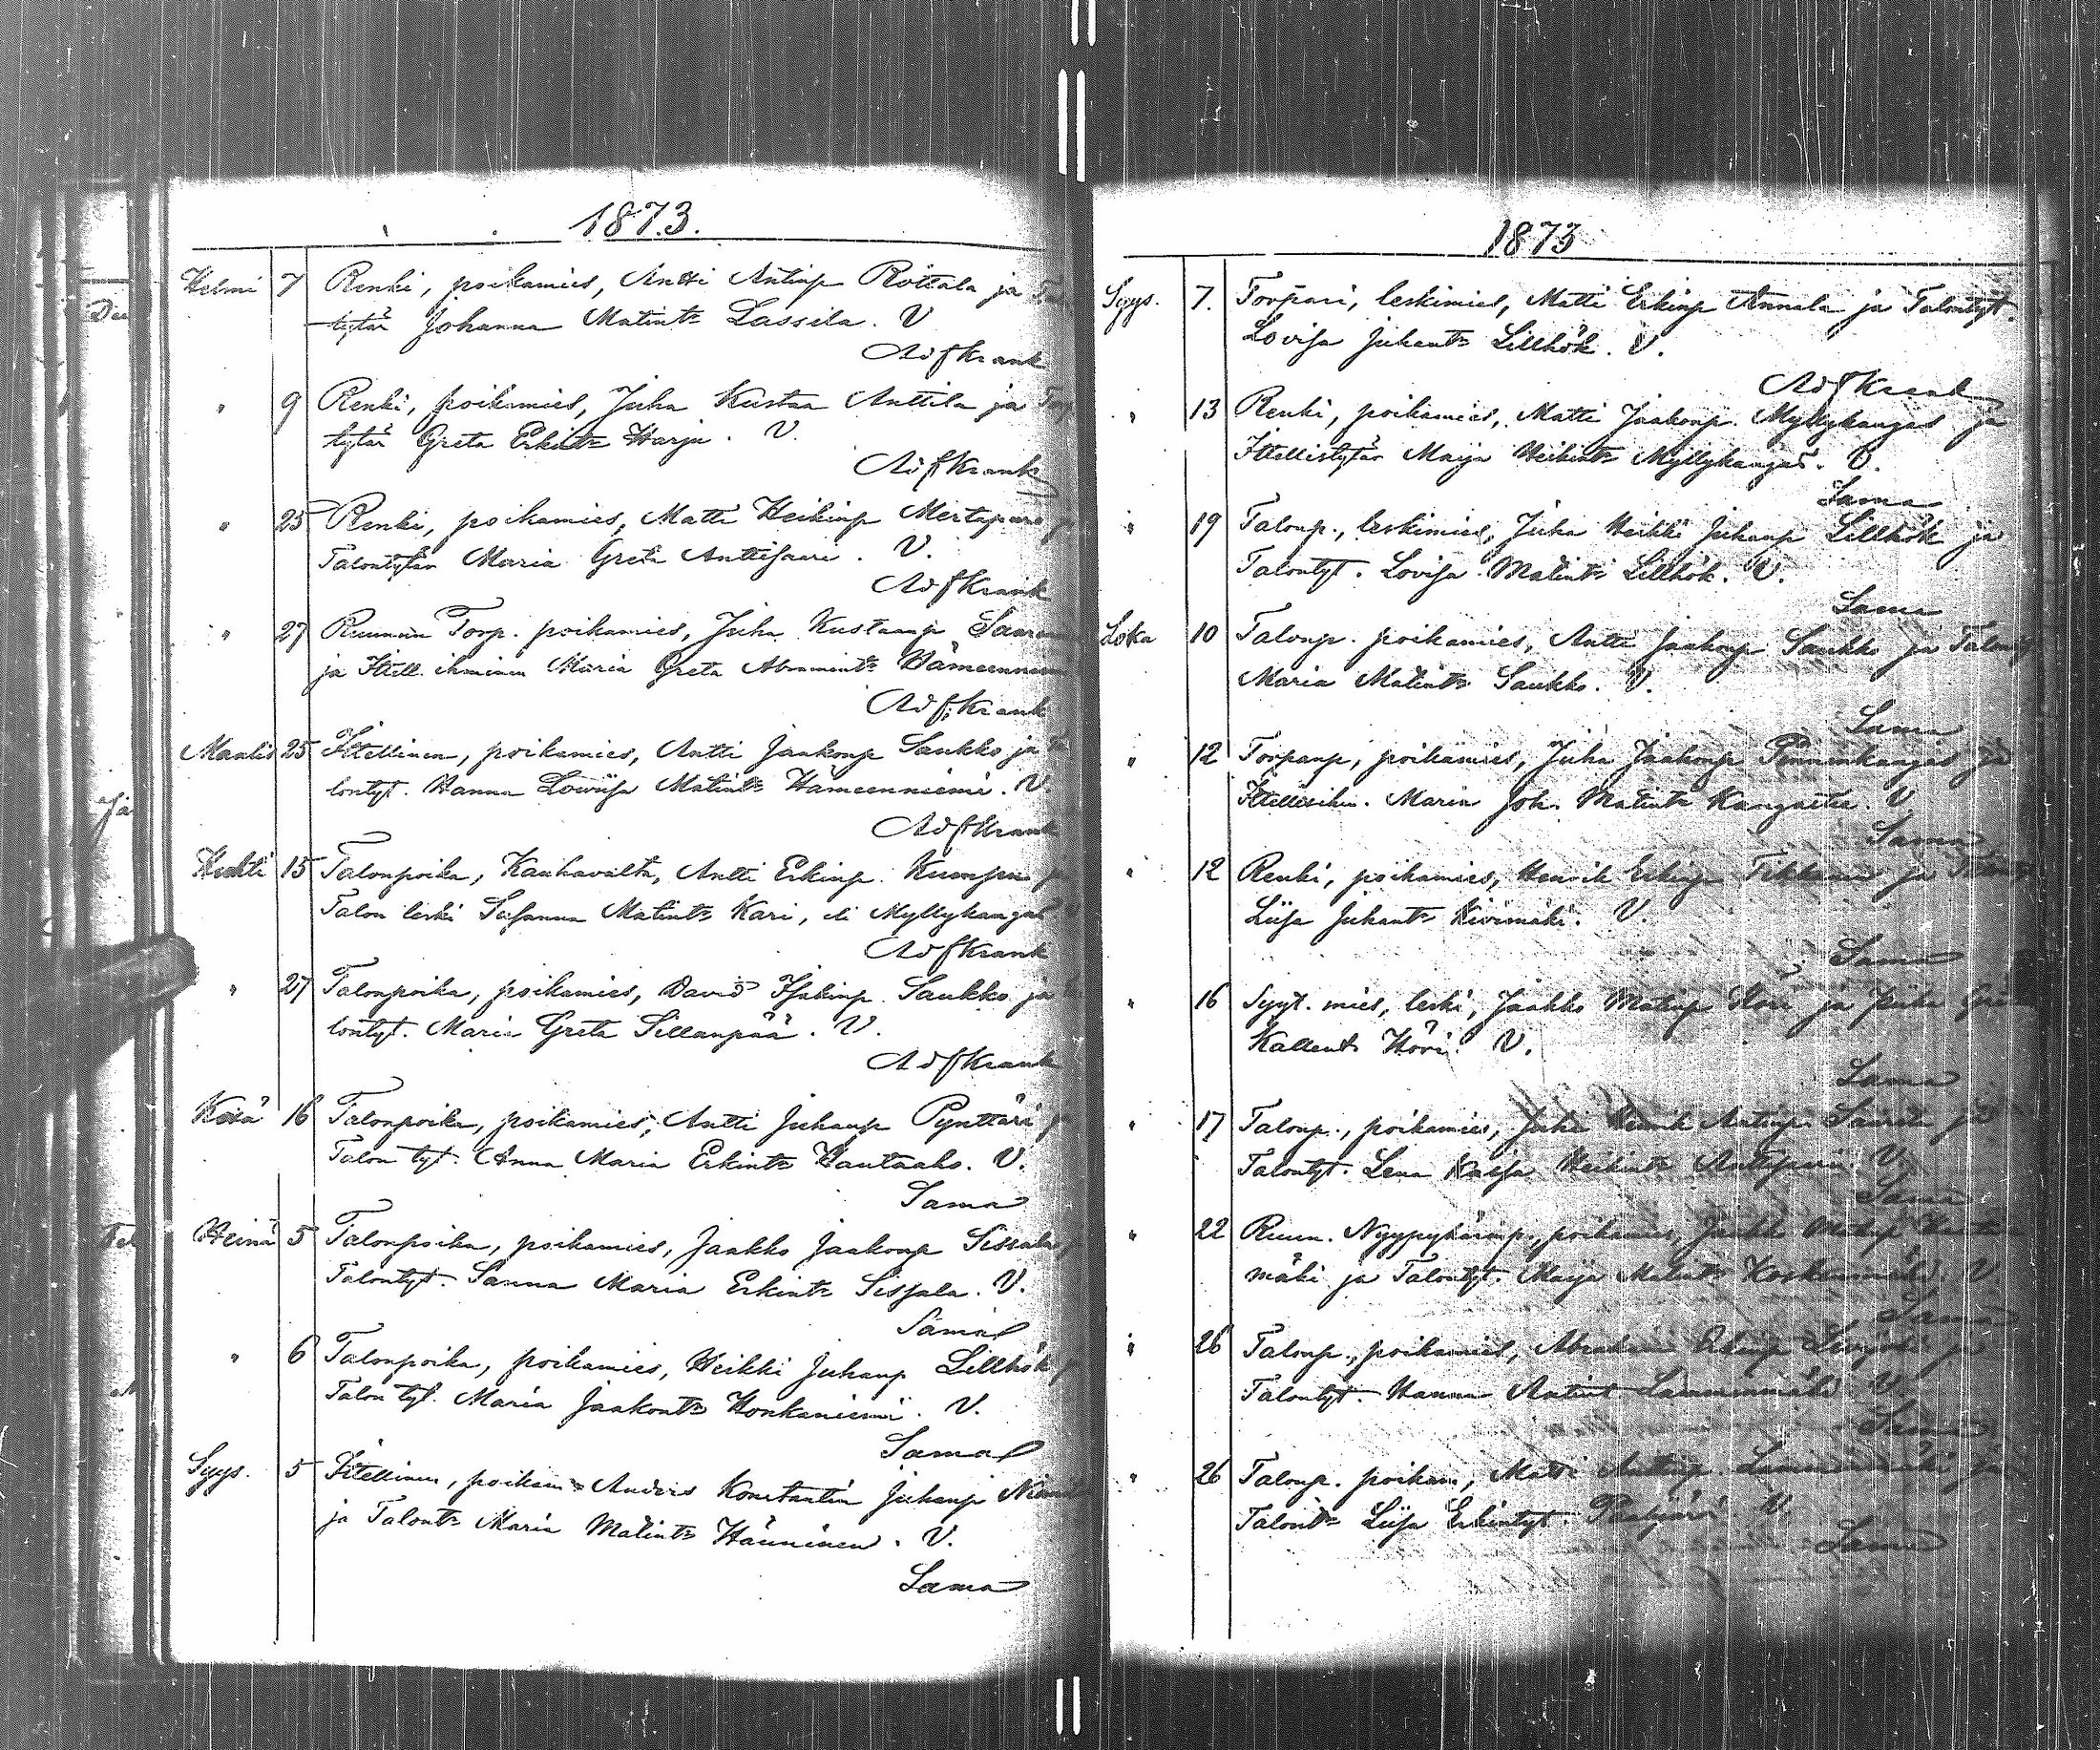 1873.
Helmi 7 Renki, poikamies, Antti Antinp Rottala ja
tytär Johanna Matint: Lassila. V
Ad f Krank
" 9 Renki, poikamies, Juha Kustaa Anttila ja
tytär Greta Erkint: Harju. V.
Ad f Krank
" 25 Renki, poikamies, Matti Heikinp
Talontytär Maria Greta Anttisaari. V.
Ad f Krank
" 27 Ruunun Torp. poikamies, Juha Kustaanp
ja Itell. ihminen Maria Greta Abramint:
Ad f Krank
Maalis 25 Itellinen, poikamies, Antti Jaakonp Saukko ja
lontyt. Hanna Lowiisa Matint: Hämeenniemi. V.
Ad f Krank
Huhti 15 Talonpoika, Kauhavalta, Antti Erkinp.
Talon leski Susanna Matint: Kari, eli Myllykangas
Ad f Krank
" 27 Talonpoika, poikamies, David Isakinp. Saukko ja
lontyt. Maria Greta Sillanpää. V.
Ad f Krank
Kesä 16 Talonpoika, poikamies, Antti Juhanp Pynttäri
Talon tyt. Anna Maria Erkint: Hautaaho. V.
Sama
Heinä 5 Talonpoika, poikamies, Jaakko Jaakonp Sissala
Talontyt. Sanna Maria Erkint: Sissala. V.
Sama
" 6 Talonpoika, poikamies, Heikki Juhanp Lillhök
Talon tyt. Maria Jaakont: Honkaniemi. V.
Sama
Syys. 5 Itellinen, poikam: Anders Konstantin Juhanp
ja Talont: Maria Matint: Hänninen. V.
Sama
1873
Syys. 7. Torpari, leskimies, Matti Erkinp Annala ja Talontyt.
Lovisa Juhant: Lillhök. V.
Ad f Krank
" 13 Renki, poikamies, Matti Jaakonp. Myllykangas ja
Itellistytär Maija Heikint: Myllykangas. V.
Sama
" 19 Talonp., leskimies, Juha Heikki Juhanp Lillhök ja
Talontyt. Lovisa Matint: Lillhök. V.
Sama
Loka 10 Talonp. poikamies, Antti Jaakonp Saukko ja
Maria Matint: Saukko. V.
Sama
" 12 Torpanp, poikamies, Juha Jaakonp Penninkangas ja
Maria Joh. Matint: V
Sama
" 12 Renki, poikamies, Henrik Erkinp Tikkanen ja
Liisa Juhant: Kivimäki. V.
Sama
" 16 Syyt. mies, leski, Jaakko Matinp ja piika
Kallent: Höri. V.
Sama
" 17 Talonp., poikamies, Juha Henrik Antinp ja
Talontyt. Lena Kaisa Heikint: V.
Sama
" 22 Ruun. poikamies, Jaakko Matinp
mäki ja Talontyt. Maija Matint: Koskenmäki V
Sama
" 26 Talonp., poikamies, Abraham Erkinp ja
Talontyt. Hanna Antint Lamminmäki V.
Sama
" 26 Talonp. poikam, Matti Anttinp. Lamminmäki ja
Talont: Liisa Erkintyt. V.
Sama